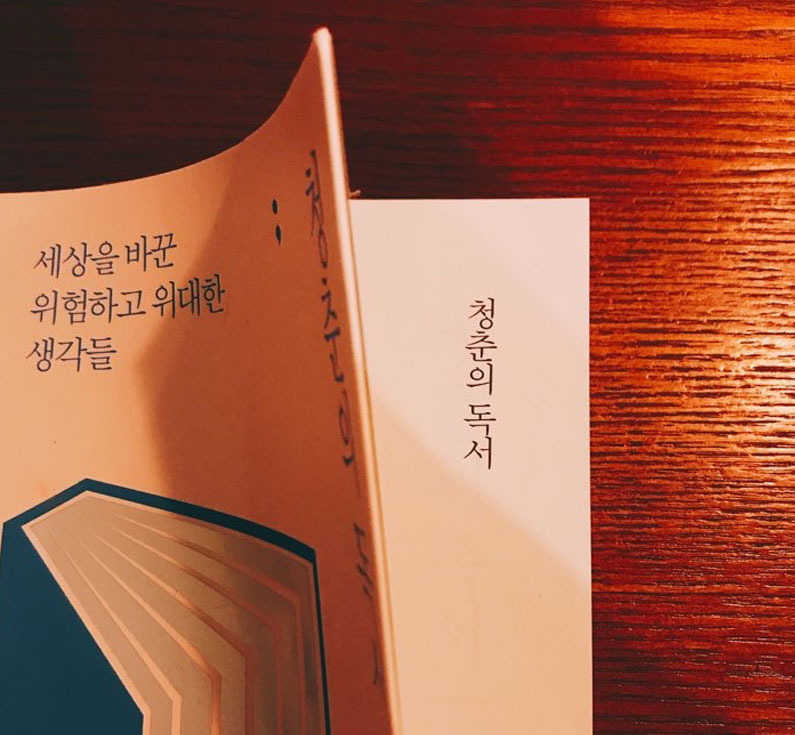 세상을 바꾼
위험하고 위대한
생각들
;
청춘의 독서
청춘의 독서